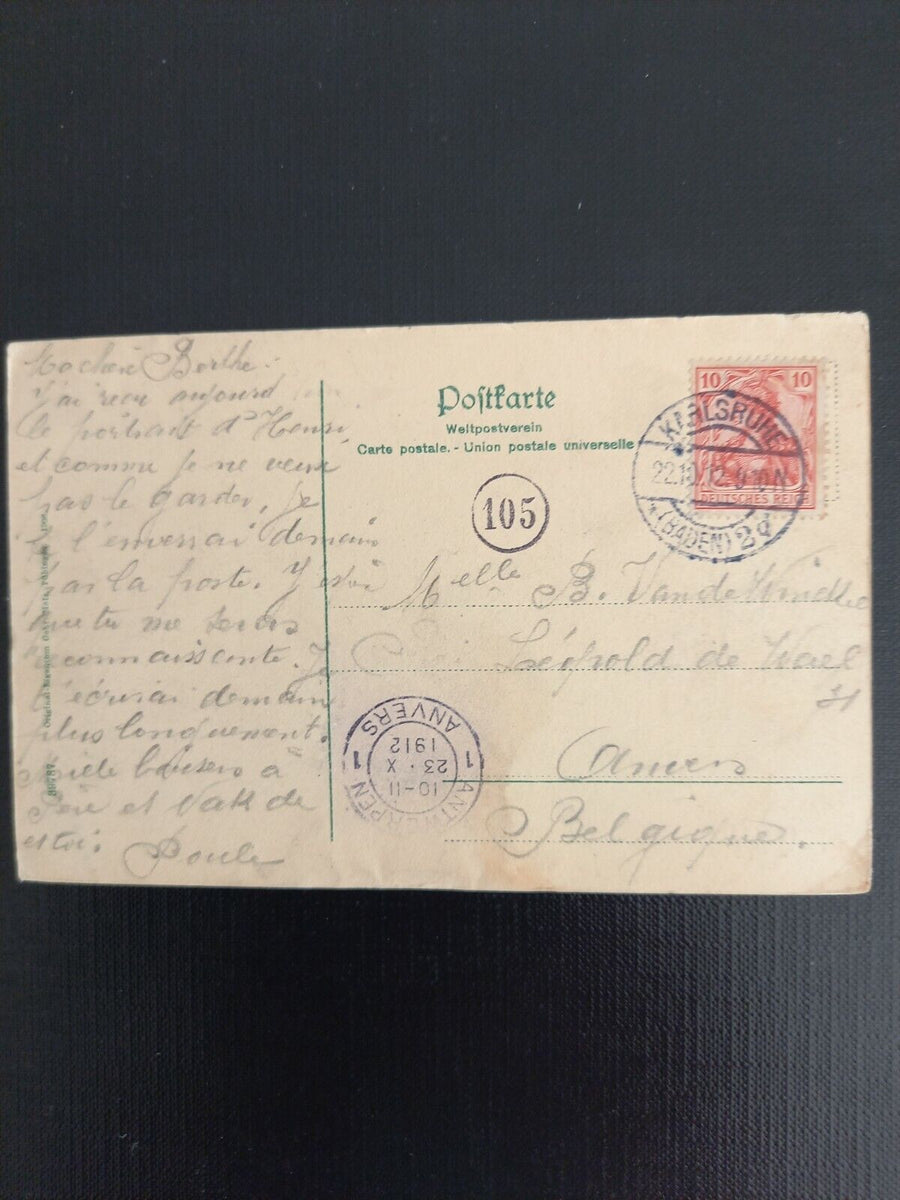 Ma chère Berthe.
J'ai reçu aujourd
le portrait d'Henri,
et comme je ne veux
pas le garder, je
l'enverrai demain
par la poste.
que tu me seras
reconnaissante. Je
t'écrirai demain
plus longuement.
Mille baisers à
Père et
et toi.
Postkarte
Weltpostverein
Carte postale. - Union postale universelle
105
10 10
DEUTSCHES REICH
KARLSRUHE
22.10.12
(BADEN) 2
Melle B. Van de Winckel
Léopold de Wael
Anvers
Belgique.
1 ANTWERPEN 1
10-11
23 · X
1912
ANVERS